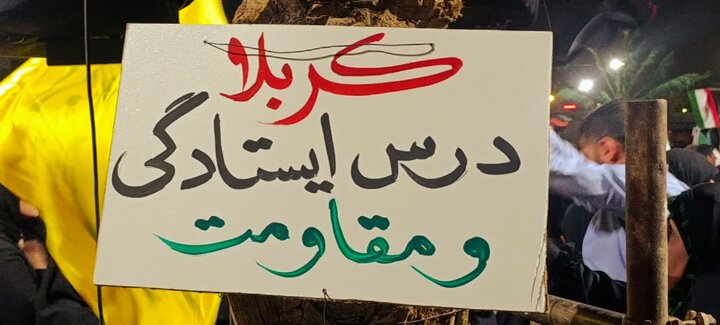 کربلا
درس ایستادگی
و مقاومت